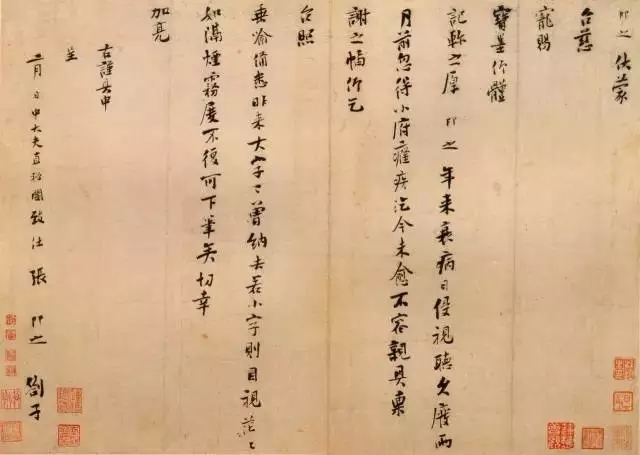 即之 伏蒙
台慈
寵賜
寶墨仰體
記軫之厚 即之 年來衰病日侵視聽久廢兩
月前忽得小府癃疾迄今未愈不容親具稟
謝之幅仰乞
台照
垂諭備悉昨來大字曾納去若小字則目視茫〻
如滿煙霧不復可下筆矣切幸
加亮
右謹具申
呈
二月 日中大夫直祕閣致仕 張 即之 劄子